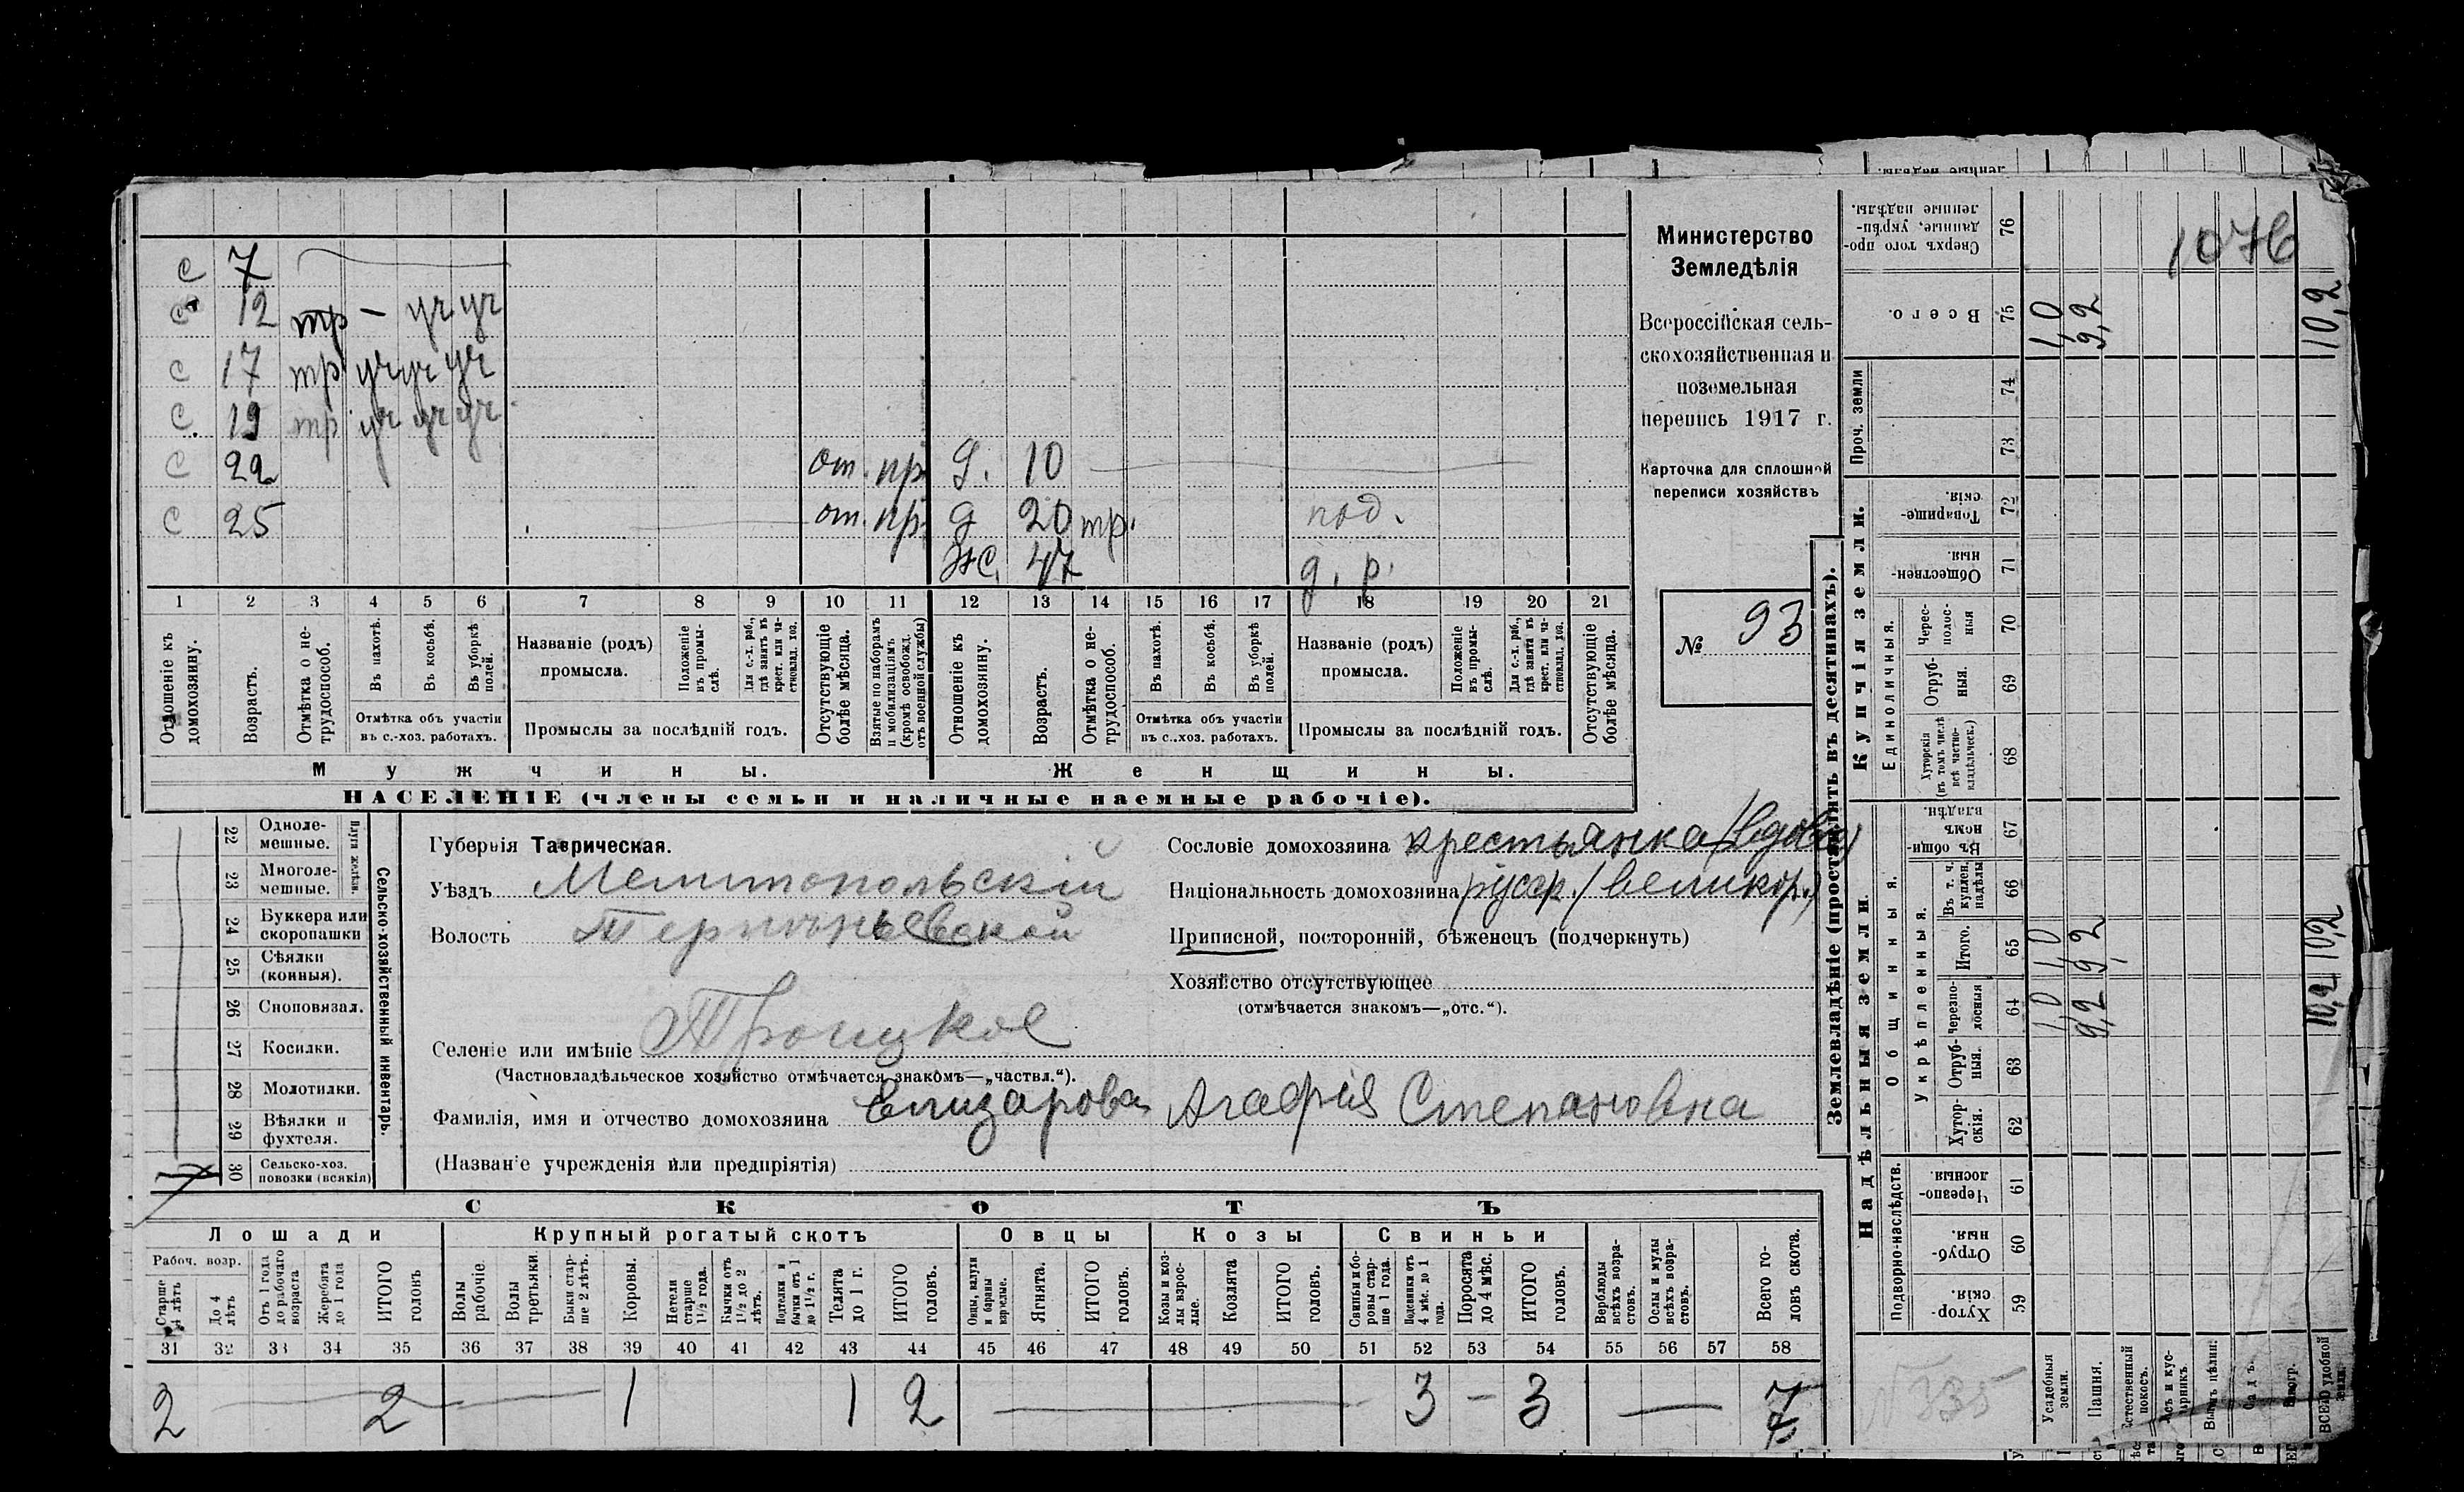 Министерство
Земледѣлія
Всероссійская сель-
скохозяйственная и
поземельная
перепись 1917 г.
Карточка для сплошной
переписи хозяйствъ
№ 93
с 7
с 12 тр — уч уч
с 17 тр уч уч уч
с 19 тр уч уч уч
с 22 от. пр. д. 10
с 25 от. пр. д 20 тр. под.
ж. 47 д. р.
1 2 3 4 5 6 7 8 9 10 11 12 13 14 15 16 17 18 19 20 21
Отношеніе къ домохозяину.
Возрастъ.
Отмѣтка о не-трудоспособ.
Въ пахотѣ.
Въ косьбѣ.
Въ уборкѣ полей.
Отмѣтка объ участіи
въ с.-хоз. работахъ.
Названіе (родъ)
промысла.
Положеніе въ промы-слѣ.
Для с.-х. раб., гдѣ занятъ въ крест. или ча-стновлад. хоз.
Промыслы за послѣдній годъ.
Отсутствующіе болѣе мѣсяца.
Взятые по наборамъ и мобилизаціямъ (кромѣ освобожд. отъ военной службы)
Отношеніе къ домохозяину.
Возрастъ.
Отмѣтка о не-трудоспособ.
Въ пахотѣ.
Въ косьбѣ.
Въ уборкѣ полей.
Отмѣтка объ участіи
въ с.-хоз. работахъ.
Названіе (родъ)
промысла.
Положеніе въ промы-слѣ.
Для с.-х. раб., гдѣ занятъ въ крест. или ча-стновлад. хоз.
Промыслы за послѣдній годъ.
Отсутствующіе болѣе мѣсяца.
Мужчины. Женщины.
НАСЕЛЕНІЕ (члены семьи и наличные наемные рабочіе).
Сельско-хозяйственный инвентарь.
Плуги желѣзн.
22 Одноле-мешные.
23 Многоле-мешные.
24 Буккера или скоропашки
25 Сѣялки (конныя).
26 Сноповязал.
27 Косилки.
28 Молотилки.
29 Вѣялки и фухтеля.
30 Сельско-хоз. повозки (всякія)
Губернія Таврическая.
Уѣздъ Мелитопольскій
Волость
Селеніе или имѣніе Троицкое
(Частновладѣльческое хозяйство отмѣчается знакомъ—„частвл.“).
Фамилія, имя и отчество домохозяина Елизарова Агафія Степановна
(Названіе учрежденія или предпріятія)
Сословіе домохозяина крестьянка (вдова)
Національность домохозяина русск. (великор.)
Приписной, посторонній, бѣженецъ (подчеркнуть)
Хозяйство отсутствующее
(отмѣчается знакомъ—„отс.“).
СКОТЪ
Лошади Крупный рогатый скотъ Овцы Козы Свиньи
Рабоч. возр.
Старше 4 лѣтъ
До 4 лѣтъ
Отъ 1 года до рабочаго возраста
Жеребята до 1 года
ИТОГО головъ
Волы рабочіе.
Волы третьяки
Быки стар-ше 2 лѣтъ.
Коровы.
Нетели старше 1½ года.
Бычки отъ 1½ до 2 лѣтъ.
Подтелки и бычки отъ 1 до 1½ г.
Телята до 1 г.
ИТОГО головъ.
Овцы, валухи и бараны взрослые.
Ягнята.
ИТОГО головъ.
Козы и коз-лы взрос-лые.
Козлята
ИТОГО головъ.
Свиньи и бо-ровы стар-ше 1 года.
Подсвинки отъ 4 мѣс. до 1 года.
Поросята до 4 мѣс.
ИТОГО головъ.
Верблюды всѣхъ возра-стовъ.
Ослы и мулы всѣхъ возра-стовъ.
Всего го-ловъ скота.
31 32 33 34 35 36 37 38 39 40 41 42 43 44 45 46 47 48 49 50 51 52 53 54 55 56 57 58
2 — 2 — 1 1 2 — 3 — 3 — 7
Землевладѣніе (проставлять въ десятинахъ).
Надѣльныя земли. Купчія земли. Проч. земли
Подворно-наслѣдств.
Общинныя.
Укрѣпленныя.
Единоличныя.
59 Хутор-скія.
60 Отруб-ныя.
61 Черезпо-лосныя
62 Хутор-скія.
63 Отруб-ныя.
64 Черезпо-лосныя 1,0 9,2 10,2
65 Итого. 1,0 9,2 10,2
66 Въ т. ч. куплен. надѣлы
67 Въ общин-номъ владѣн.
68 Хуторскія (въ томъ числѣ всѣ частно-владѣльческ.)
69 Отруб-ныя.
70 Черес-полос-ныя
71 Обществен-ныя.
72 Товарище-скія.
73
74
75 Всего. 1,0 9,2 10,2
76 Сверхъ того про-данные, укрѣп-ленные надѣлы.
1076
Усадебныя земли.
Пашня.
Естественный покосъ.
Лѣсъ и кус-тарникъ.
Садъ.
Виногр.
ВСЕГО удобной земли.